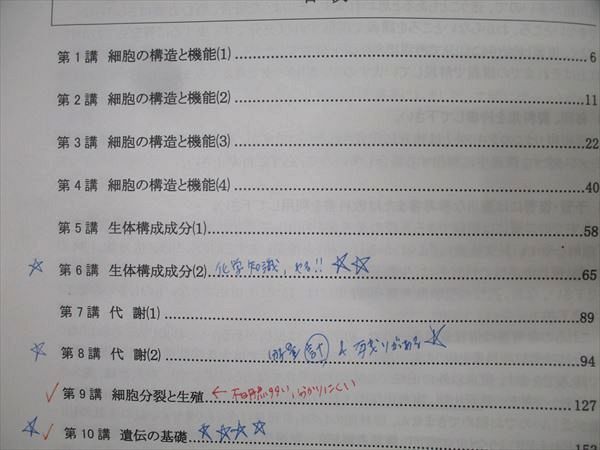 第1講 細胞の構造と機能(1) 6
第2講 細胞の構造と機能(2) 11
第3講 細胞の構造と機能(3) 22
第4講 細胞の構造と機能(4) 40
第5講 生体構成成分(1) 58
☆ 第6講 生体構成成分(2) 化学知識、やる!! ☆☆ 65
第7講 代 謝(1) 89
☆ 第8講 代 謝(2) ☆ 94
✓ 第9講 細胞分裂と生殖 ← 不明点多い、分かりにくい 127
☆✓ 第10講 遺伝の基礎 ☆☆☆☆ 152